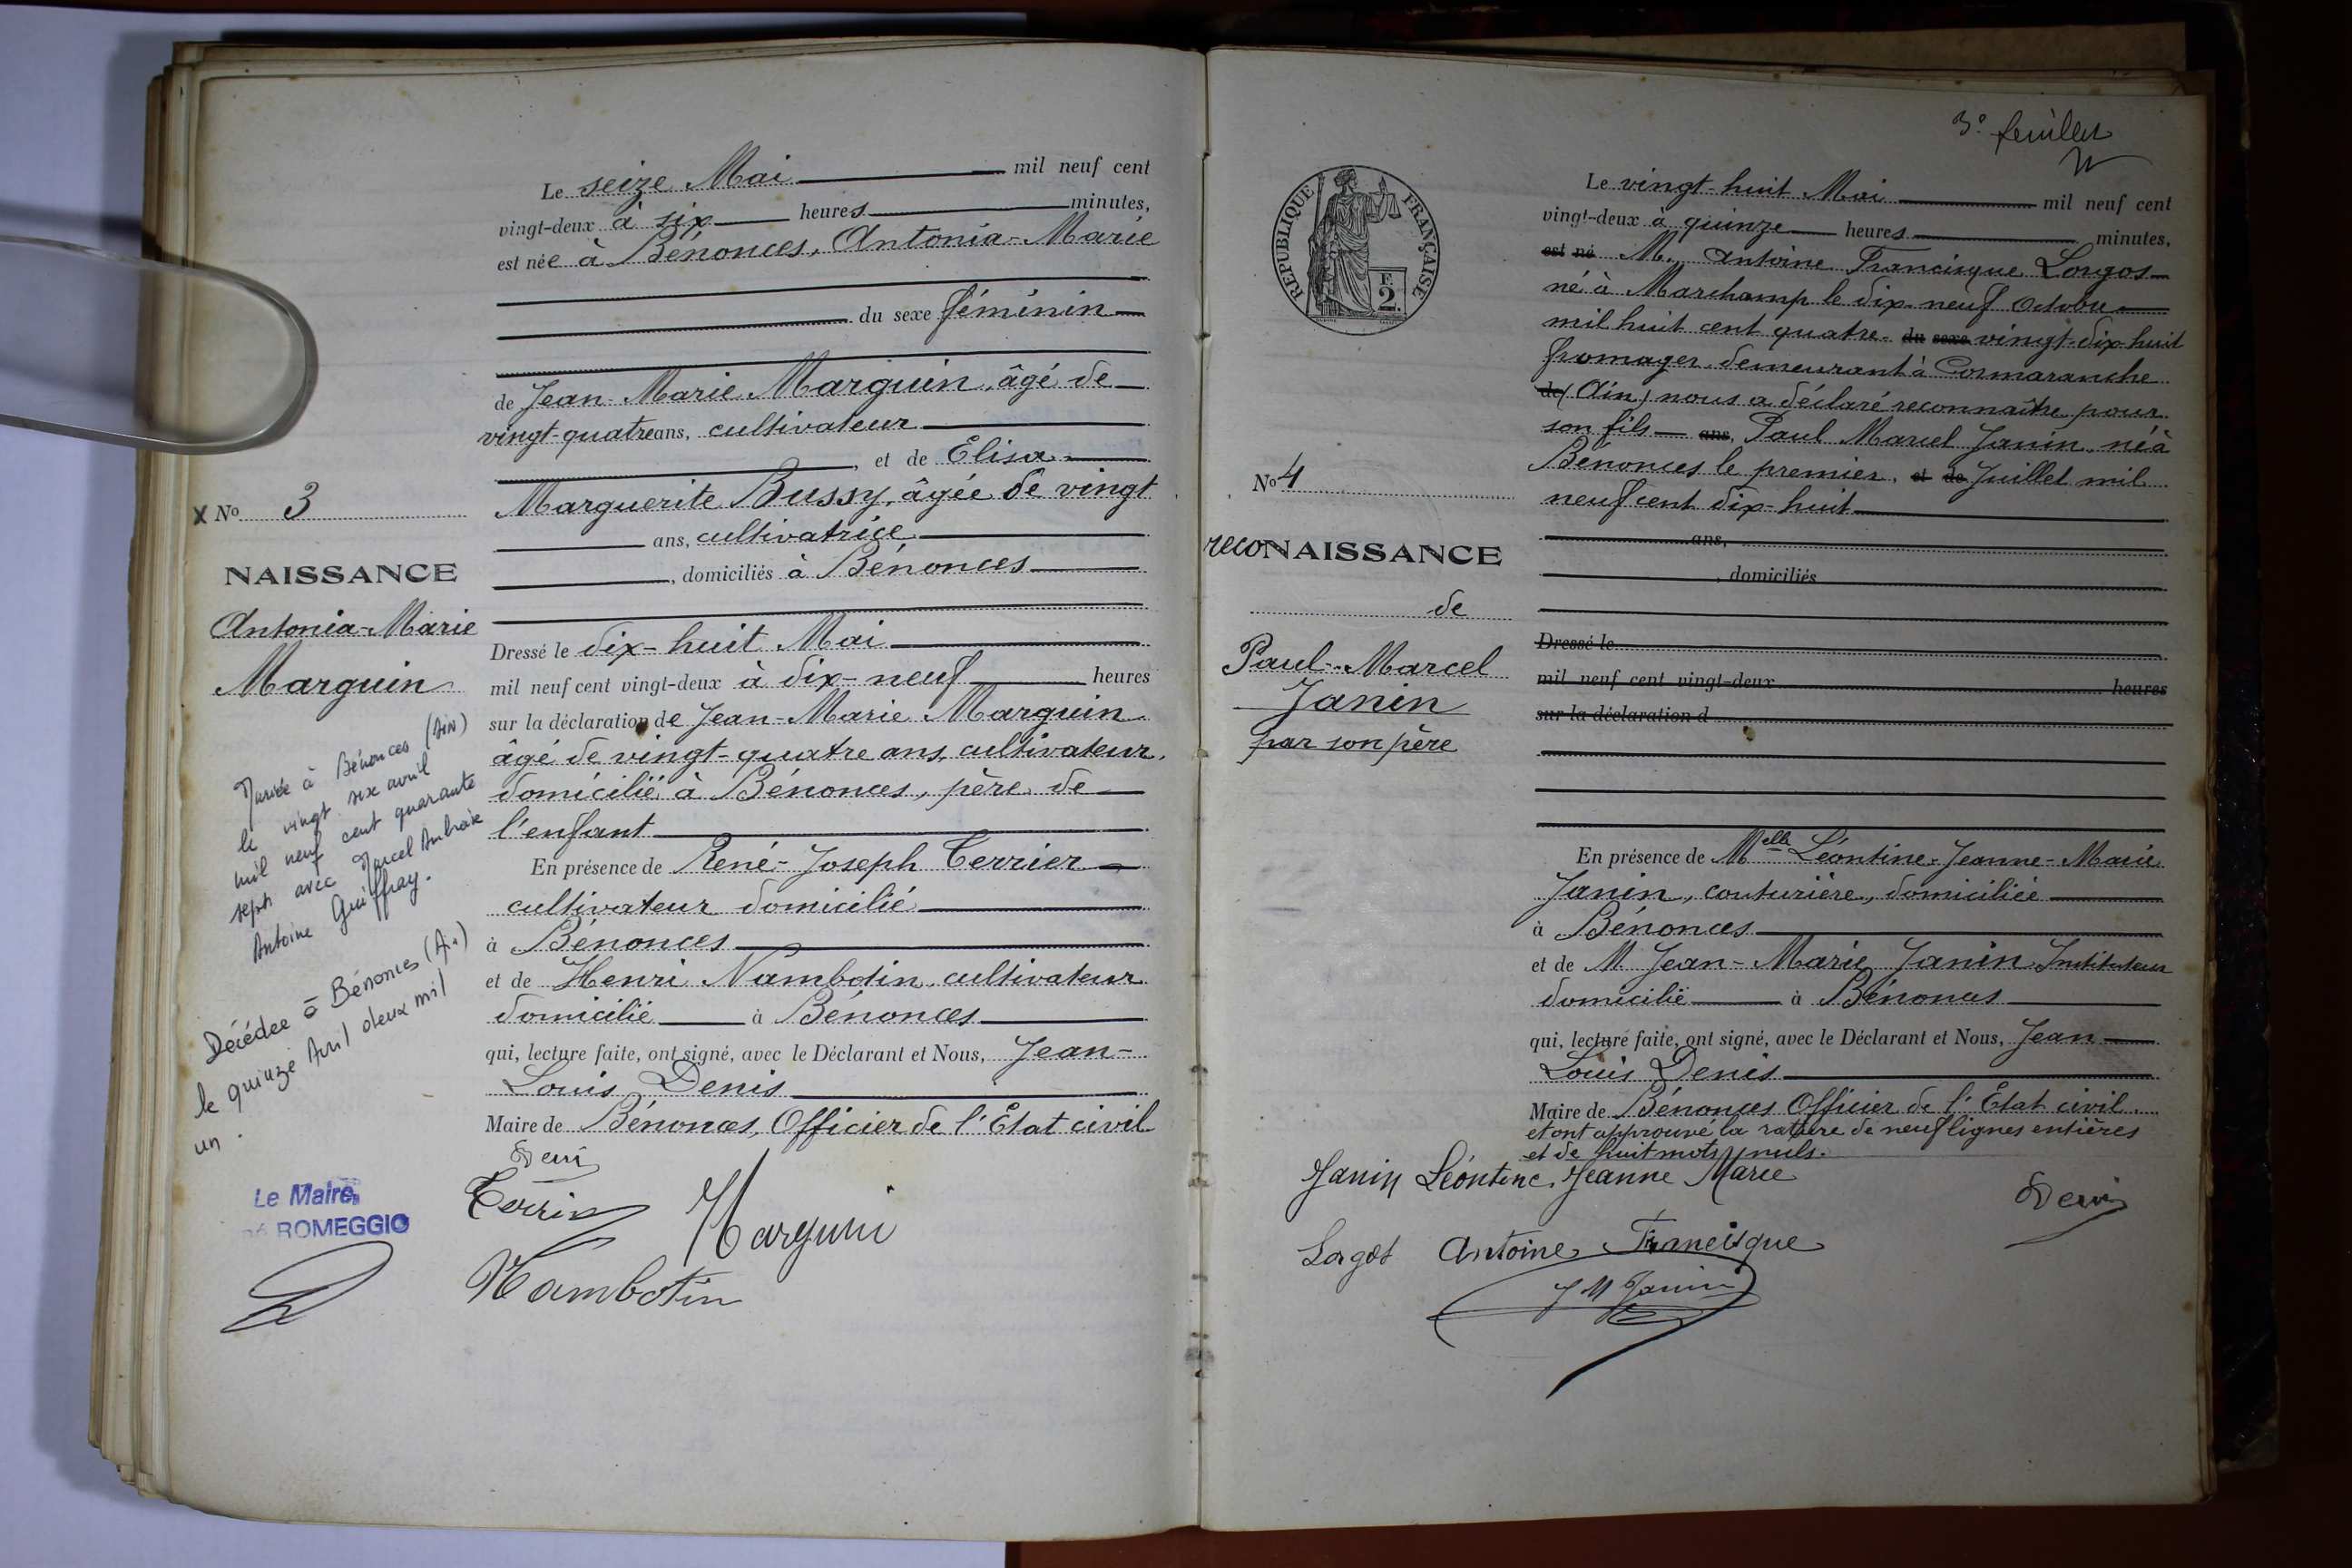 Le seize Mai mil neuf cent
vingt-deux à six heures minutes,
est née à Bénonces, Antonia-Marie
du sexe féminin
de Jean-Marie Marguin, âgé de
vingt-quatre ans, cultivateur
, et de Elisa
Marguerite Bussy, âgée de vingt
ans, cultivatrice
, domiciliés à Bénonces
Dressé le dix-huit Mai
mil neuf cent vingt-deux à dix-neuf heures
sur la déclaration de Jean-Marie Marguin
âgé de vingt-quatre ans, cultivateur,
domicilié à Bénonces, père de
l'enfant
En présence de René-Joseph Terrier
cultivateur domicilié
à Bénonces
et de Henri Nambotin, cultivateur
domicilié à Bénonces
qui, lecture faite, ont signé, avec le Déclarant et Nous, Jean-
Louis Denis
Maire de Bénonces, Officier de l'Etat civil
Denis
Terrier
Marguin
Nambotin
X No 3
NAISSANCE
Antonia-Marie
Marguin
Mariée à Bénonces (Ain)
le vingt six avril
mil neuf cent quarante
sept avec Marcel Ambroise
Antoine Guiffray.
Décédée à Bénonces (Ain)
le quinze Avril deux mil
un.
Le Maire,
ROMEGGIO
3e feuillet
REPUBLIQUE FRANÇAISE
F.
2.
No 4
recoNAISSANCE
de
Paul-Marcel
Janin
par son père
Le vingt-huit Mai mil neuf cent
vingt-deux à quinze heures minutes,
est né M. Antoine Francisque Longos
né à Marchamp le dix neuf Octobre
mil huit cent quatre- du sexe vingt-dix-huit
fromager demeurant à Cormaranche
de (Ain) nous a déclaré reconnaître pour
son fils ans, Paul Marcel Janin, né à
Bénonces le premier, et de Juillet mil
neuf cent dix-huit
ans,
, domiciliés
Dressé le
mil neuf cent vingt-deux heures
sur la déclaration d
En présence de Melle Léontine-Jeanne-Marie
Janin, couturière, domiciliée
à Bénonces
et de M. Jean-Marie Janin Instituteur
domicilié à Bénonces
qui, lecture faite, ont signé, avec le Déclarant et Nous, Jean
Louis Denis
Maire de Bénonces Officier de l'Etat civil.
et ont approuvé la rature de neuf lignes entières
et de huit mots nuls.
Janin Léontine. Jeanne Marie
Denis
Antoine Francisque
J M Janin